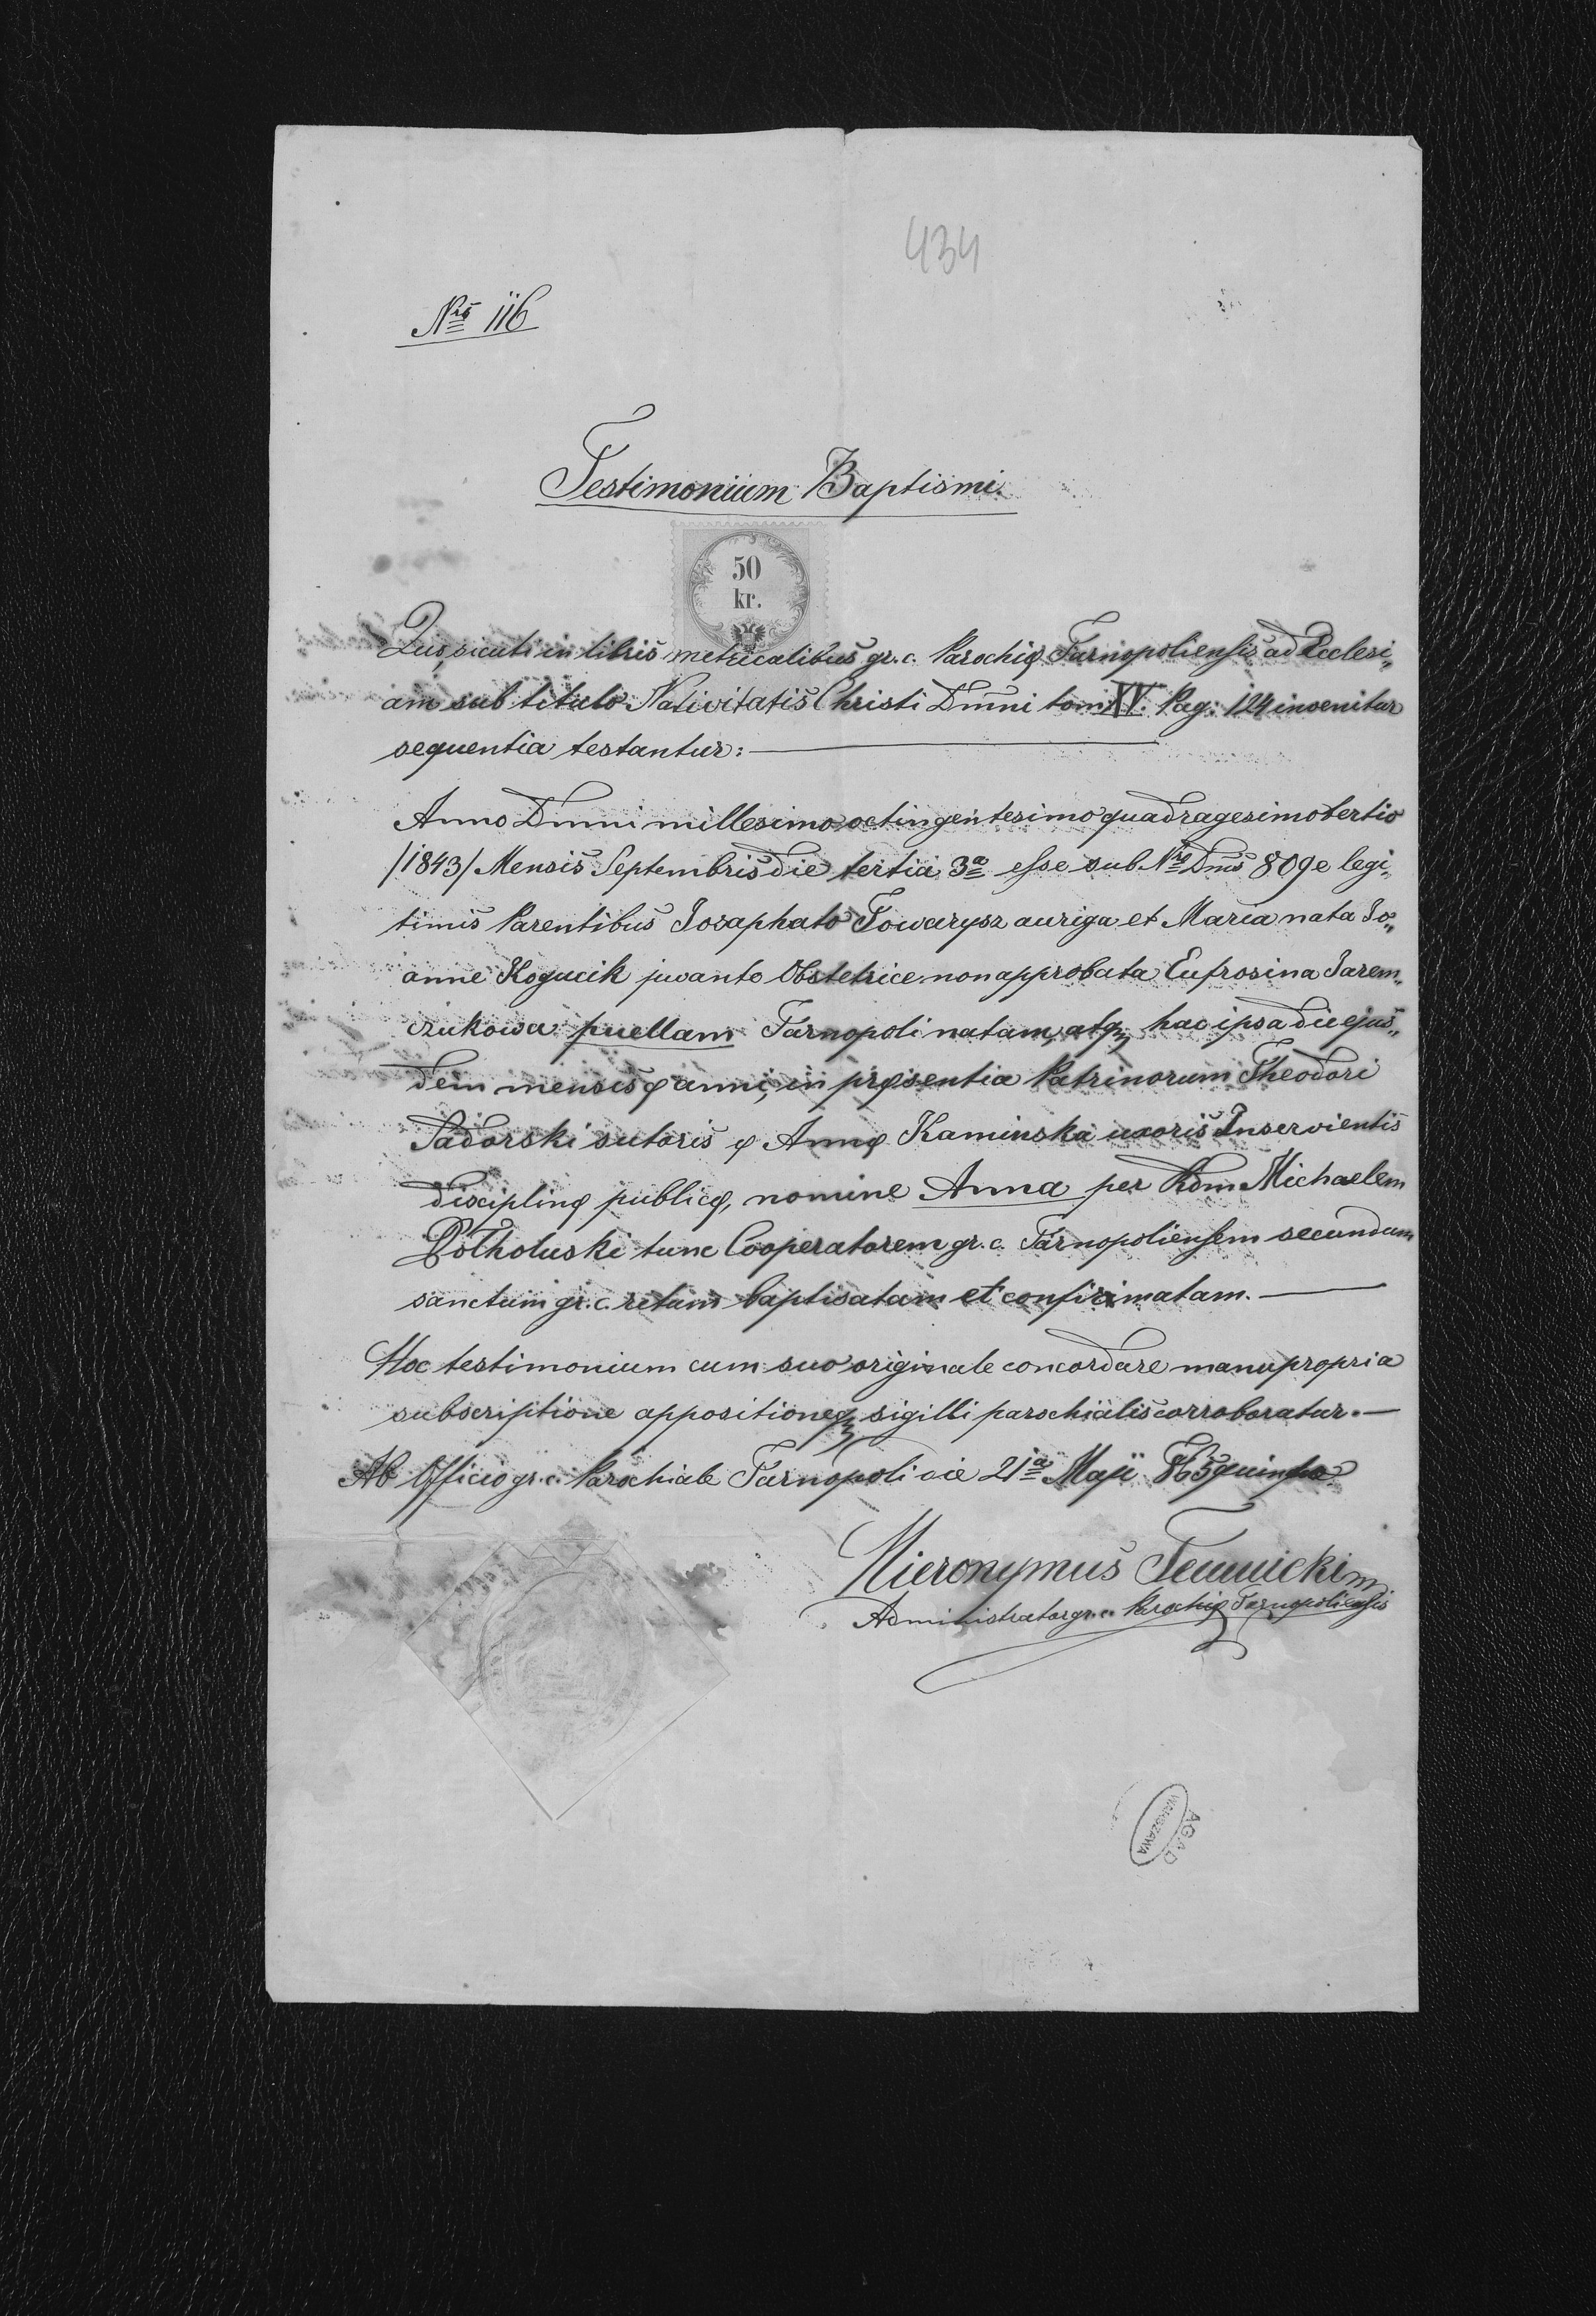 434
Nrō 116
Testimonium Baptismi.
50
kr.
Quo, sicuti in libris metricalibus gr. c. Parochię Tarnopoliensis ad Ecclesi„
am sub titulo Nativitatis Christi Dmni tom XV. Pag: 124 invenitur
sequentia testantur: —
Anno Dmni millesimo octingentesimo quadragesimo tertio
/1843/ Mensis Septembris die tertia 3ª esse sub Nro Dmūs 809 e legi„
timis Parentibus Josaphato Towarysz auriga et Maria nata Jo„
anne Kogucik juvante Obstetrice non approbata Eufrosina Jarem„
czukowa puellam Tarnopoli natam, atq hac ipsa die ejus„
dem mensis ę anni, in pręsentia Patrinorum Theodori
Sadorski sutoris ę Annę Kaminska uxoris Inservientis
disciplinę publicę, nomine Anna per Rdm Michaelem
Potholuski tunc Cooperatorem gr. c. Tarnopoliensem secundum
sanctum gr. c. retum baptisatam et confirmatam. —
Hoc testimonium cum suo originale concordare manu propria
subscriptione appositioneq sigilli parochialis corroboratur. —
Ab Officio gr. c. Parochiale Tarnopoli die 21ª Maji 865 quinto
Hieronymus
Administrator gr. c. Parochię Tarnopoliensis
AGAD
WARSZAWA